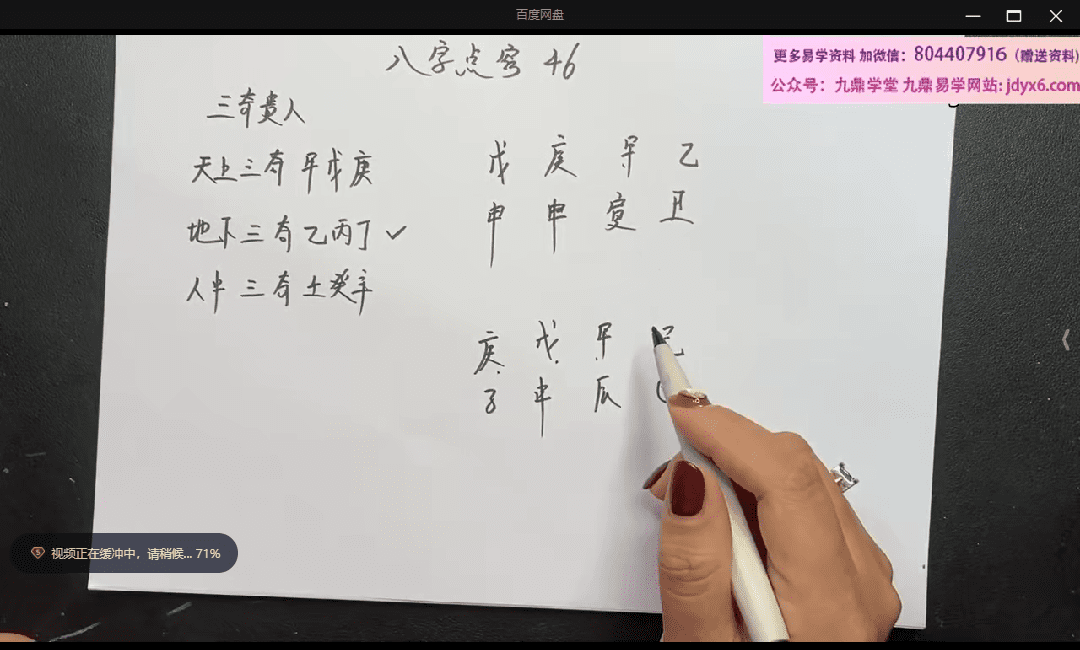 百度网盘
更多易学资料 加微信：804407916（赠送资料）
公众号：九鼎学堂 九鼎易学网站：jdyx6.com
八字点窍 46
三奇贵人
天上三奇 甲戊庚
地下三奇 乙丙丁 ✓
人中三奇 壬癸辛
戊 庚 甲 乙
申 申 寅 丑
庚 戊 甲
子 申
视频正在缓冲中，请稍候... 71%